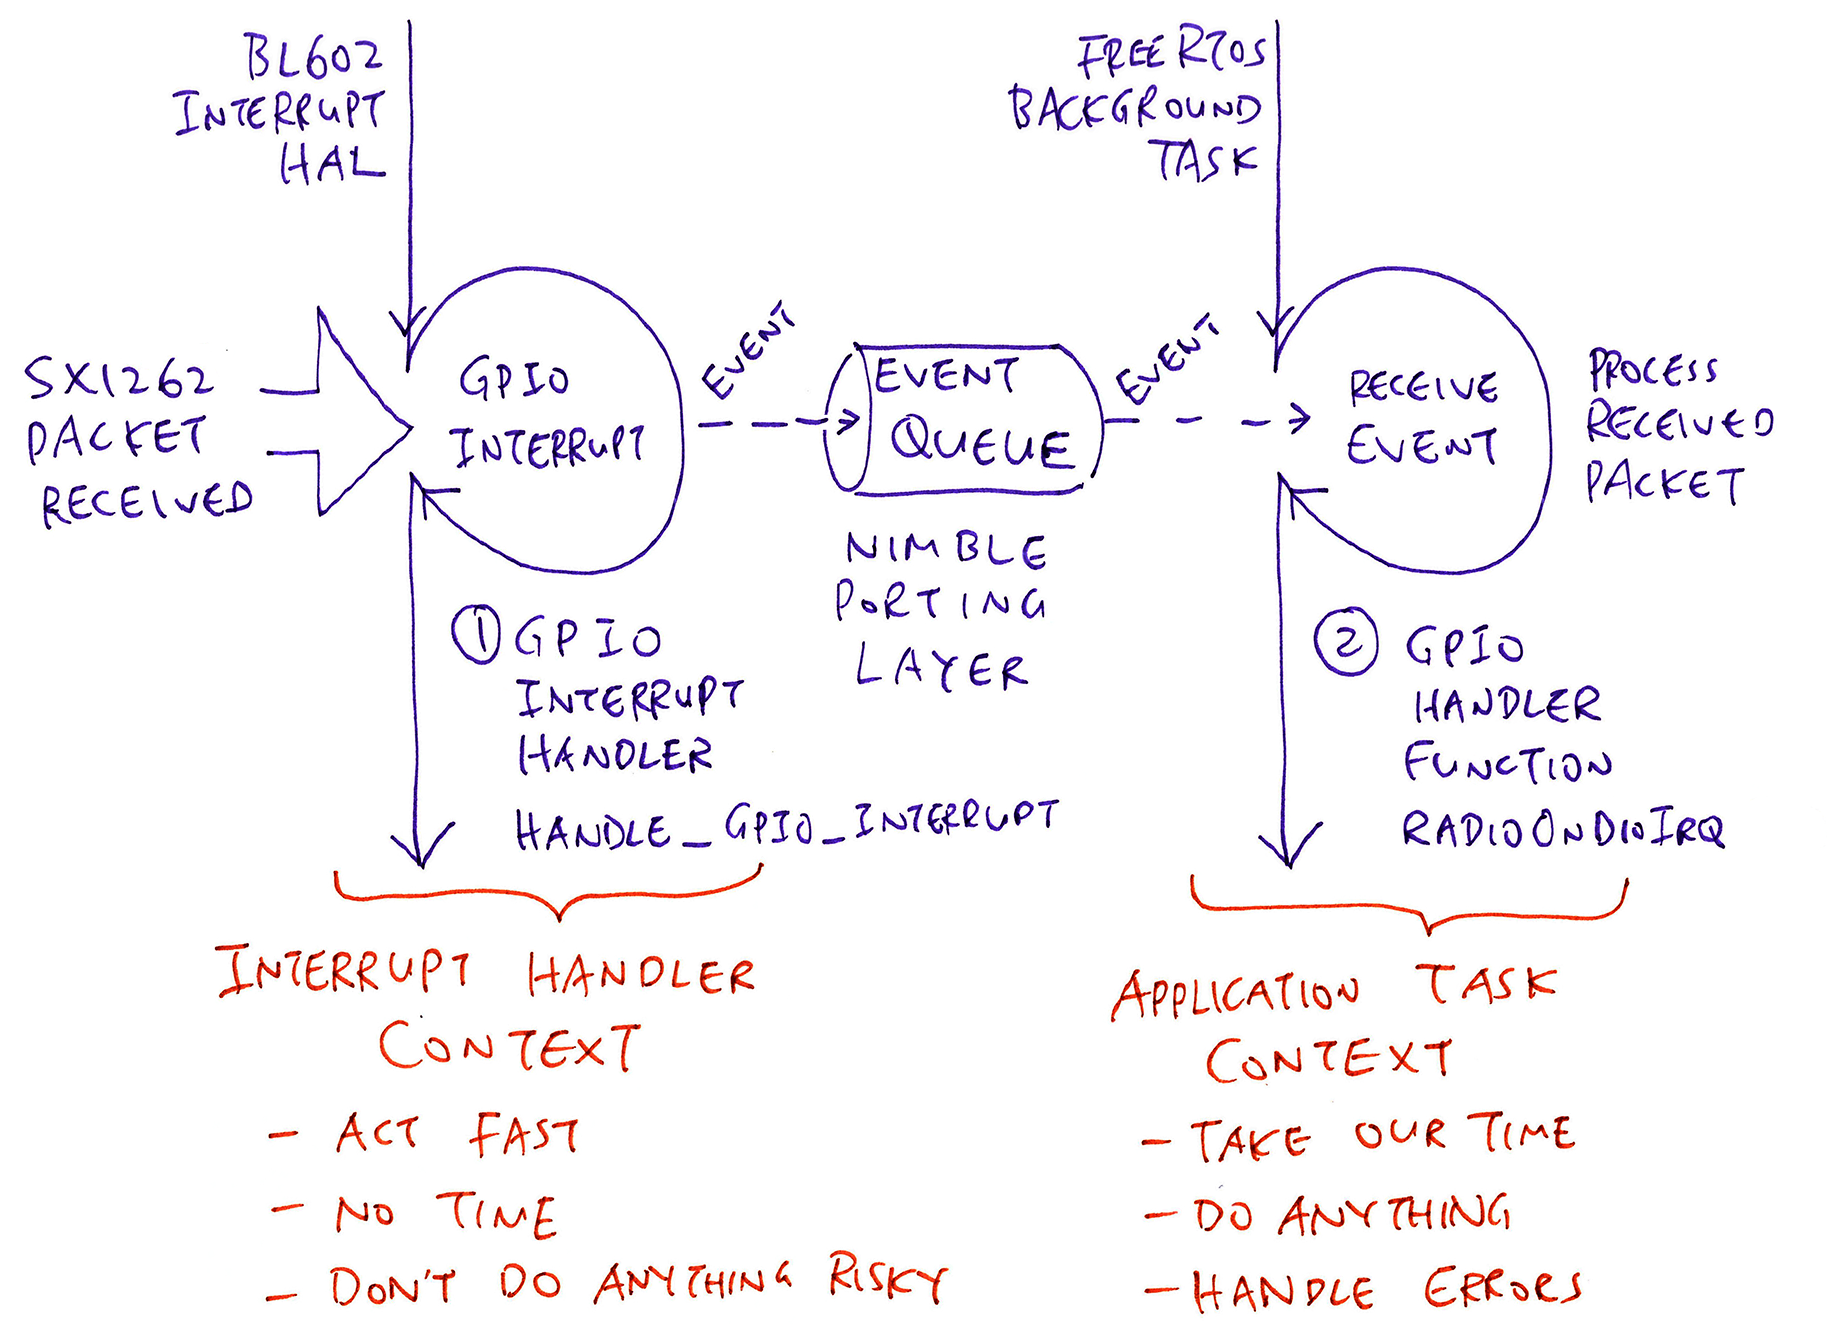 BL602
INTERRUPT
HAL
FREERTOS
BACKGROUND
TASK
SX1262
PACKET
RECEIVED
GPIO
INTERRUPT
EVENT
EVENT
QUEUE
EVENT
RECEIVE
EVENT
PROCESS
RECEIVED
PACKET
NIMBLE
PORTING
LAYER
1 GPIO
INTERRUPT
HANDLER
HANDLE_GPIO_INTERRUPT
2 GPIO
HANDLER
FUNCTION
RADIOONDIOIRQ
INTERRUPT HANDLER
CONTEXT
- ACT FAST
- NO TIME
- DON'T DO ANYTHING RISKY
APPLICATION TASK
CONTEXT
- TAKE OUR TIME
- DO ANYTHING
- HANDLE ERRORS